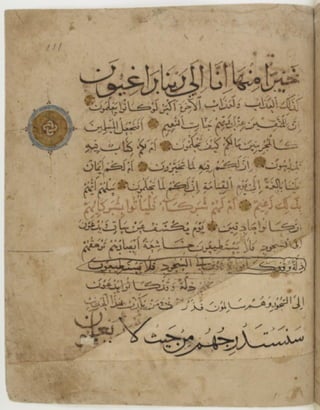 خيرا منها انا الى ربنا راغبون
كذلك العذاب ولعذاب الاخرة اكبر لو كانوا يعلمون
ان للمتقين عند ربهم جنات النعيم افنجعل المسلمين
كالمجرمين ما لكم كيف تحكمون ام لكم كتاب فيه
تدرسون ان لكم فيه لما تخيرون ام لكم ايمان
علينا بالغة الى يوم القيامة ان لكم لما تحكمون سلهم ايهم
بذلك زعيم ام لهم شركاء فليأتوا بشركائهم
ان كانوا صادقين يوم يكشف عن ساق ويدعون
الى السجود فلا يستطيعون خاشعة ابصارهم ترهقهم
ذلة وقد كانوا الى السجود فلا يستطيعون
ذلة وقد كانوا يدعون
الى السجود وهم سالمون فذرني ومن يكذب بهذا الحديث
سنستدرجهم من حيث لا يعلمون